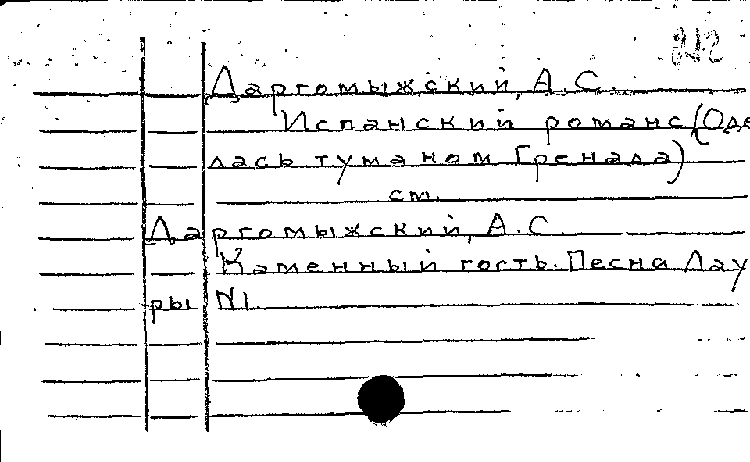 212
Даргомыжский, А.С.
Испанский романс (Оде
лась туманом Гренада)
см.
Даргомыжский, А.С.
Каменный гость. Песня Лау
ры N1.